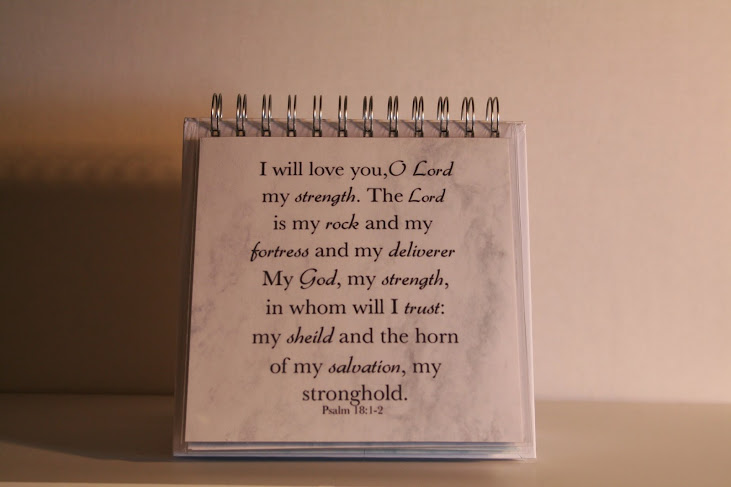 I will love you,O Lord
my strength. The Lord
is my rock and my
fortress and my deliverer
My God, my strength,
in whom will I trust:
my sheild and the horn
of my salvation, my
stronghold.
Psalm 18:1-2